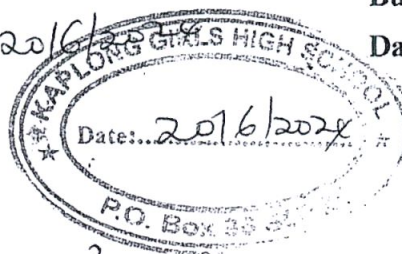 20/6/2024
KAPLONG GIRLS HIGH SCHOOL
Date:...20/6/2024
P.O. Box 36